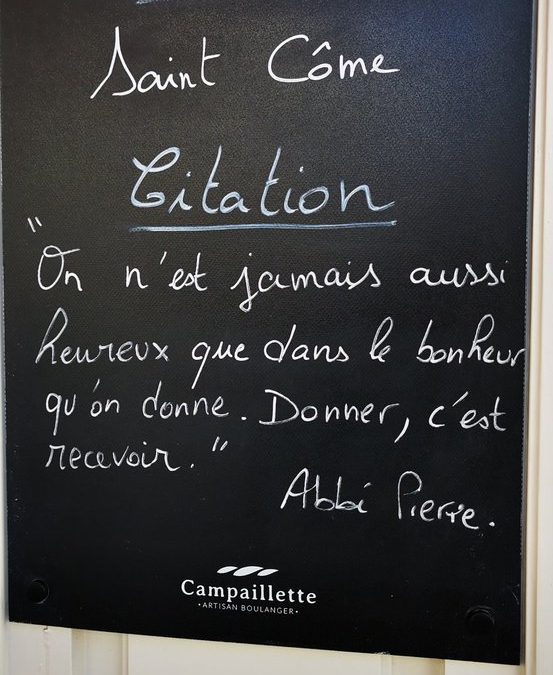 Saint Côme
Citation
"On n'est jamais aussi
heureux que dans le bonheur
qu'on donne. Donner, c'est
recevoir."
Abbé Pierre.
Campaillette
• ARTISAN BOULANGER •